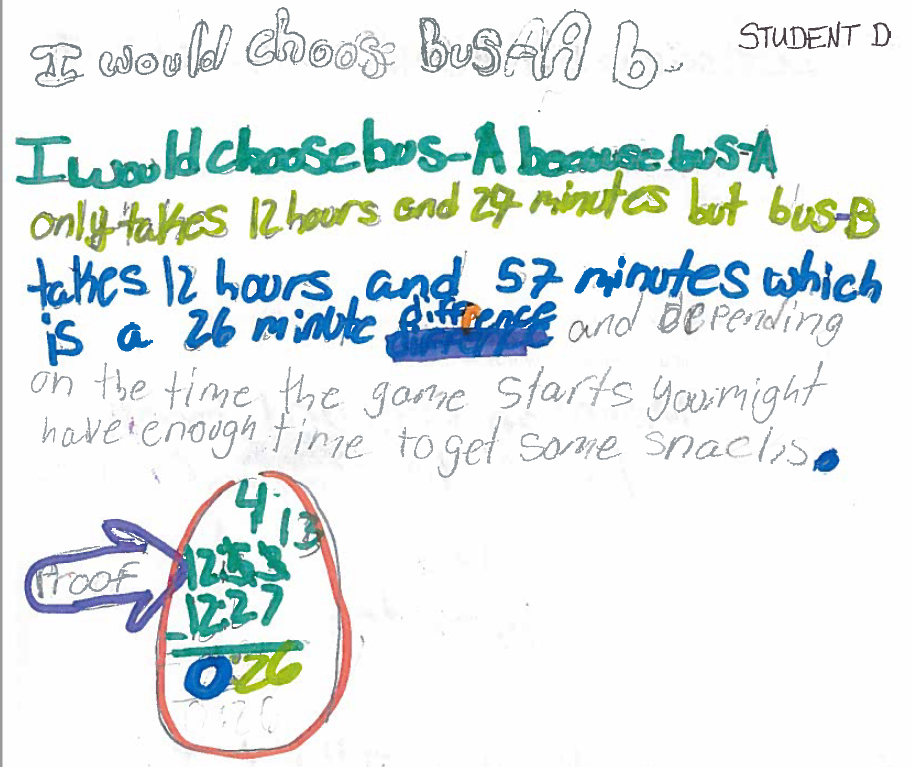 I would choose busAA b
STUDENT D
I would choose bus-A because bus-A
only takes 12 hours and 27 minutes but bus-B
takes 12 hours and 57 minutes which
is a 26 minute diffrence and depending
on the time the game starts you might
have enough time to get some snacks.
4
13
Proof
12:53
-12:27
0:26
0:26